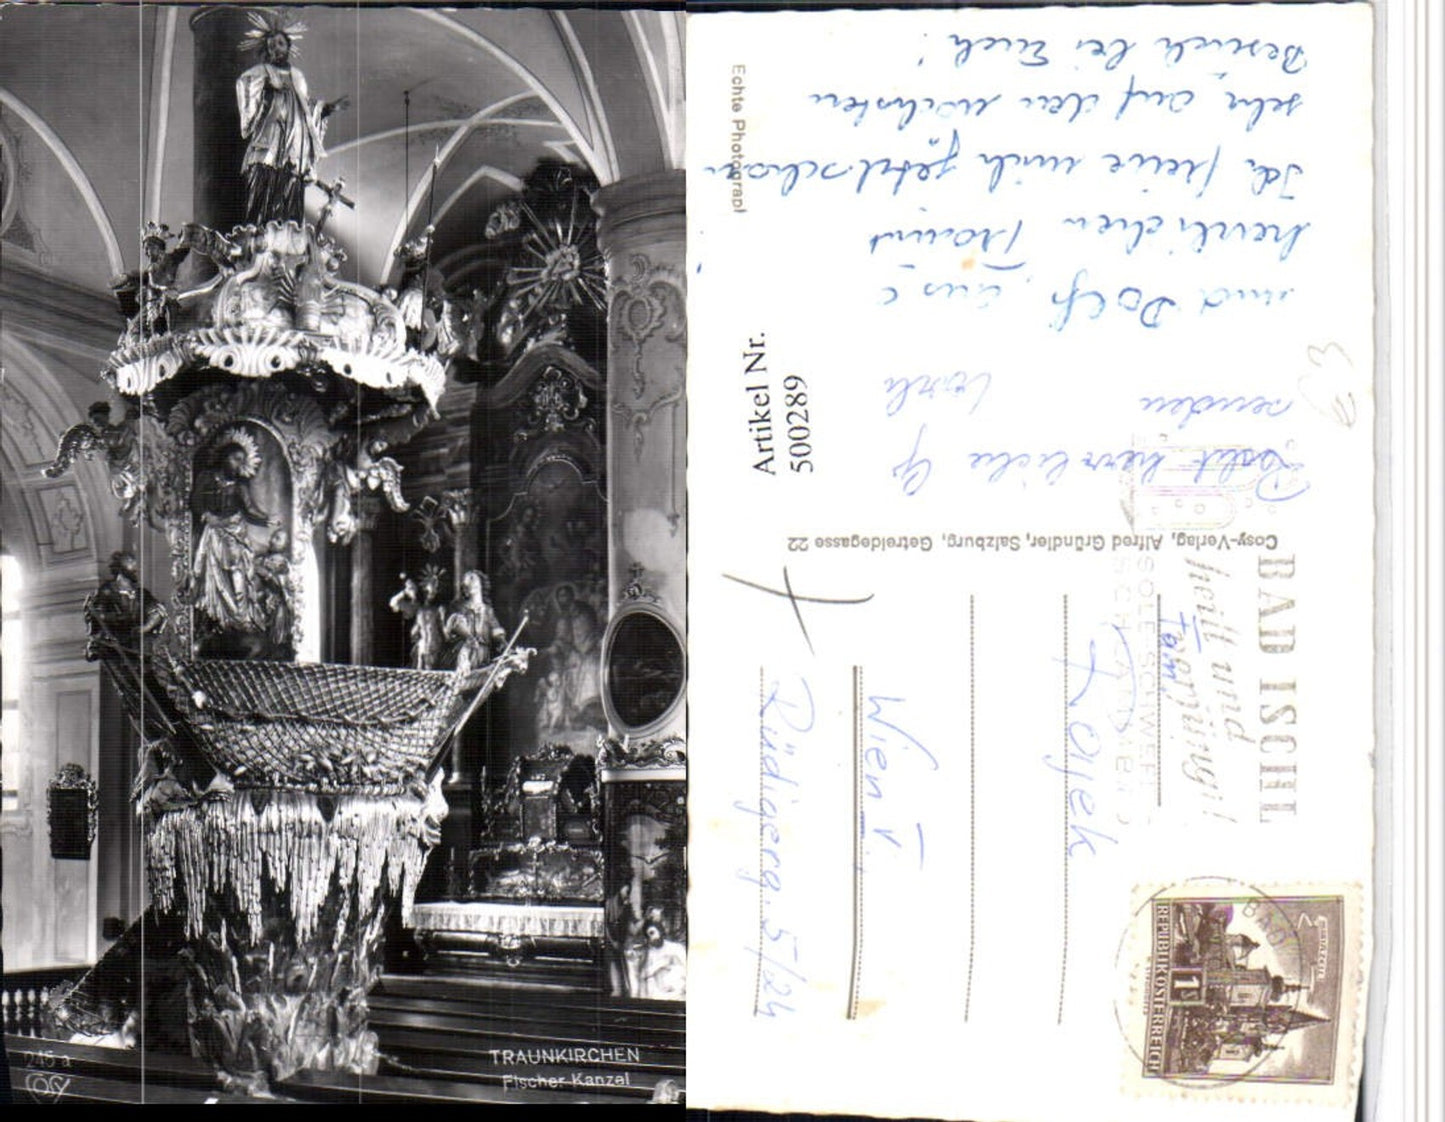 245 a
COSY
TRAUNKIRCHEN
Fischer-Kanzel
Echte Photograph
Artikel Nr.
500289
Recht herzliche
senden
und Dolf
herzlichen
Ich freue mich jetzt schon
sehr auf den nächsten
Besuch bei Euch!
Cosy-Verlag, Alfred Gründler, Salzburg, Getreidegasse 22
BAD ISCHL
heilt und
verjüngt!
SOLE SCHWEFEL
Fam.
Lojek
Wien V.
Rüdigerg. 5/24
REPUBLIK ÖSTERREICH
1 S
BAD